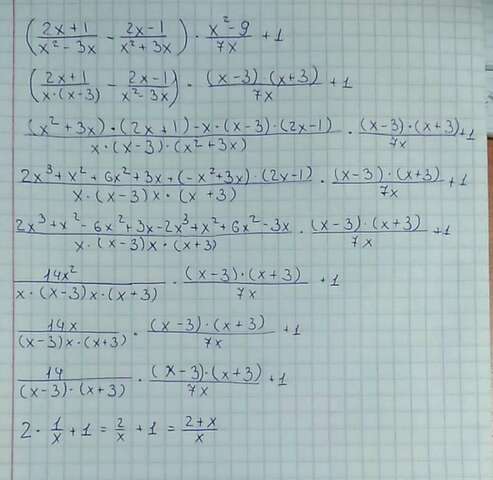 (2x+1/x²-3x - 2x-1/x²+3x) · x²-9/7x + 1
(2x+1/x·(x-3) - 2x-1/x²-3x) · (x-3)·(x+3)/7x + 1
(x²+3x)·(2x+1)-x·(x-3)·(2x-1)/x·(x-3)·(x²+3x) · (x-3)·(x+3)/7x + 1
2x³+x²+6x²+3x+(-x²+3x)·(2x-1)/x·(x-3)x·(x+3) · (x-3)·(x+3)/7x + 1
2x³+x²-6x²+3x-2x³+x²+6x²-3x/x·(x-3)x·(x+3) · (x-3)·(x+3)/7x + 1
14x²/x·(x-3)x·(x+3) · (x-3)·(x+3)/7x + 1
14x/(x-3)x·(x+3) · (x-3)·(x+3)/7x + 1
14/(x-3)·(x+3) · (x-3)·(x+3)/7x + 1
2 · 1/x + 1 = 2/x + 1 = 2+x/x